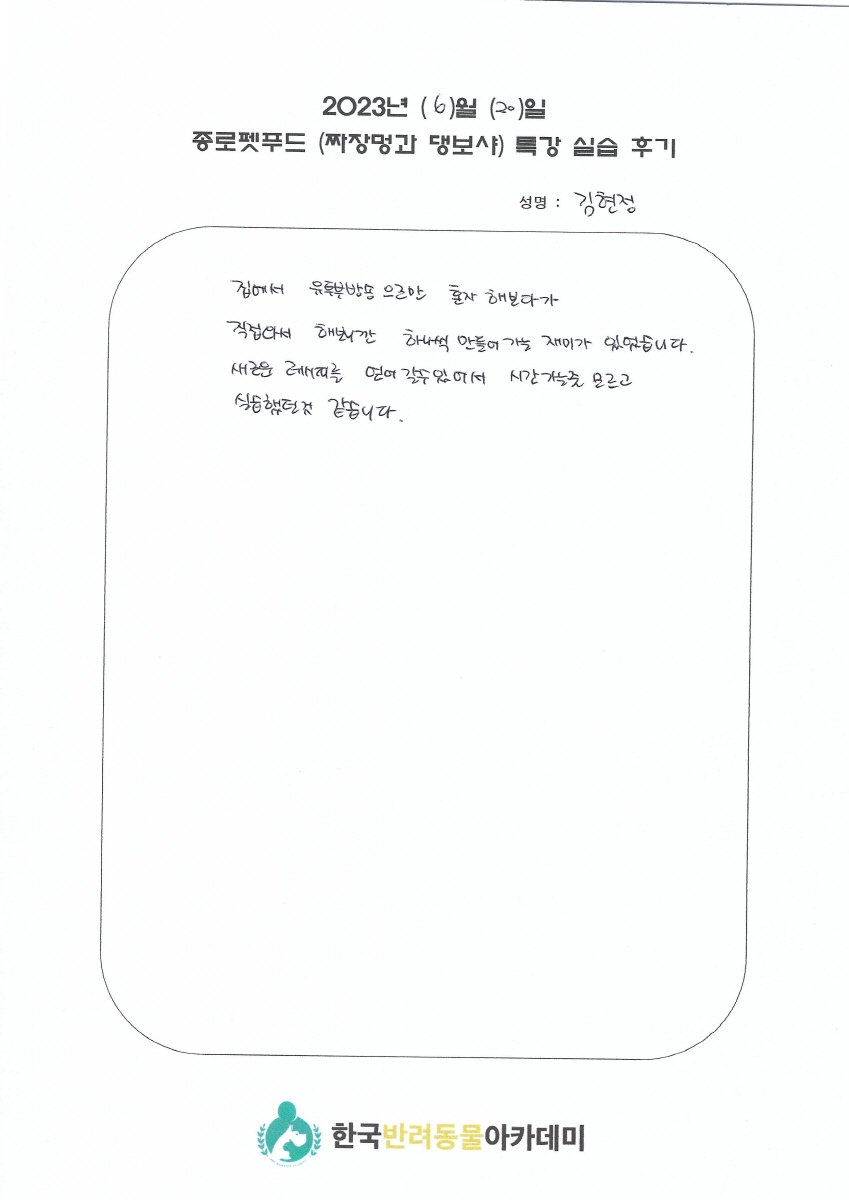 2023년 (6)월 (20)일
종로펫푸드 (짜장멍과 댕보샤) 특강 실습 후기
성명 : 김현정
집에서 유튜브방송 으로만 혼자 해보다가
직접와서 해보니깐 하나씩 만들어가는 재미가 있었습니다.
새로운 레시피를 얻어 갈수있어서 시간가는줄 모르고
실습했던것 같습니다.
한국반려동물아카데미